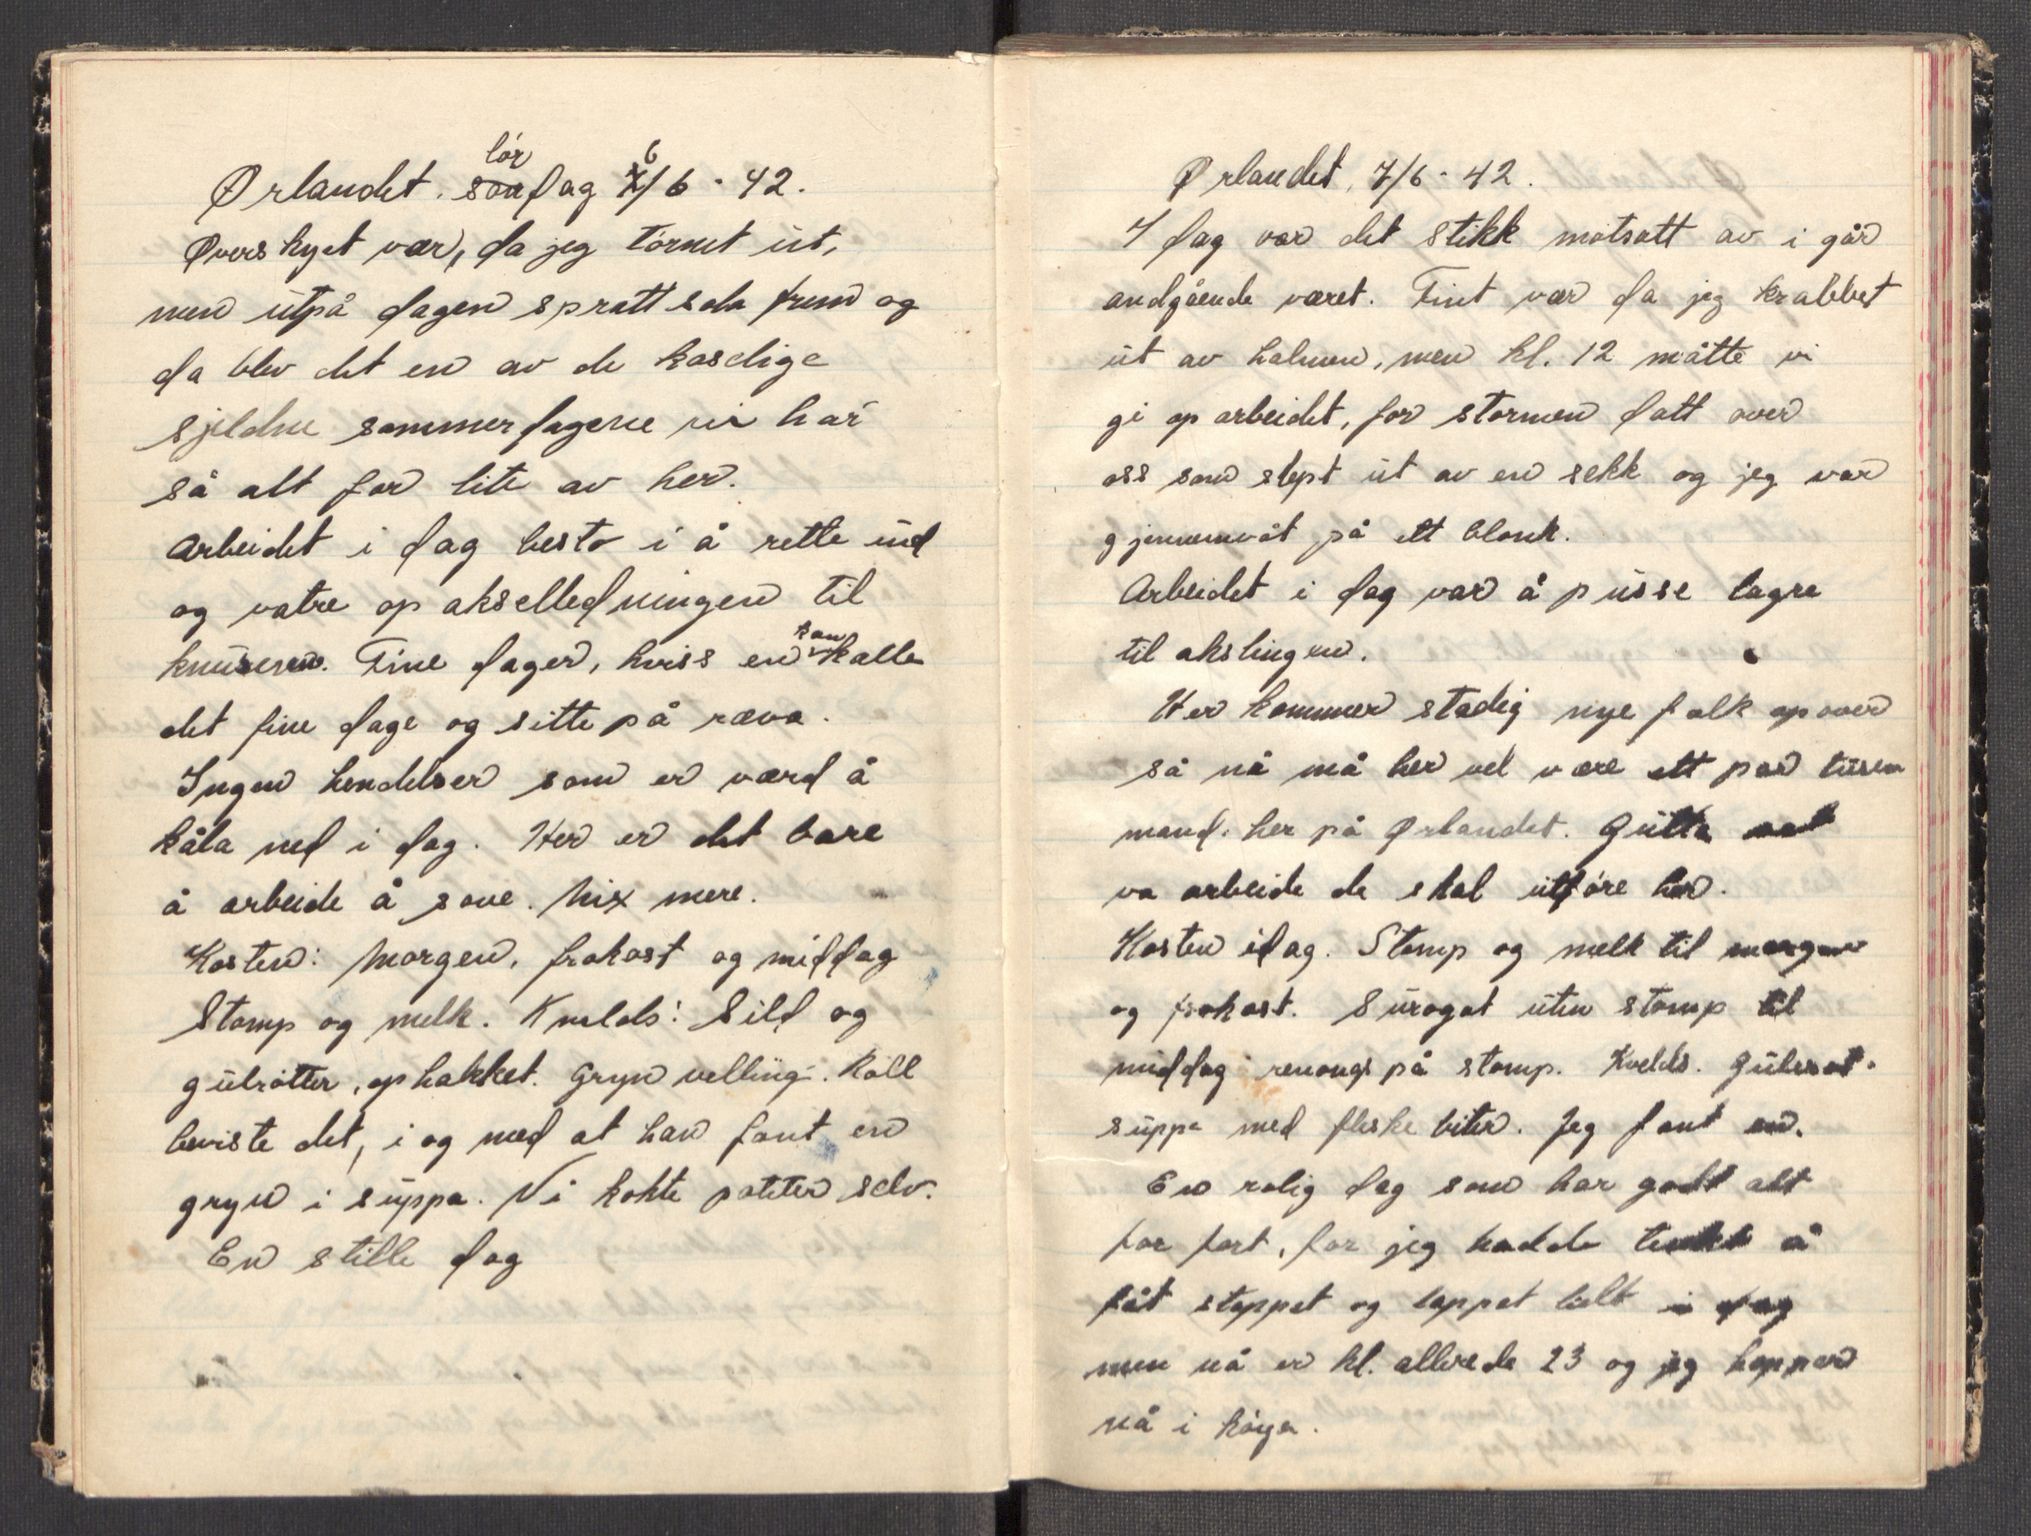 Ørlandet. lórdag 6/6 - 42.
Overskyet vær, da jeg tórnet út,
men útpå dagen spratt sola frem og
da blev det en av de koselige
sjeldne sommerdagene vi har
så alt for lite av her.
Arbeidet i dag besto i å rette ind
og vatre op akselledningen til
knúseren. Fine dager, hviss en kan kalle
det fine dage og sitte på ræva.
Ingen hendelser som er værd å
kåla ned i dag. Her er det bare
å arbeide å sove. Nix mere.
Kosten: Morgen, frokost og middag
Stomp og melk. Kvelds: Sild og
gúlrótter, ophakket. Grynvelling. Roll
beviste det, i og med at han fant en
gryn i súppa. Vi kokte poteter selv.
En stille dag
Ørlandet, 7/6 - 42.
I dag var det stikk motsatt av i går
andgående været. Fint vær da jeg krabbet
út av halmen, men kl. 12 måtte vi
gi op arbeidet, for stormen datt over
oss som slept út av en sekk og jeg var
gjennemvåt på ett blonk.
Arbeidet i dag var å pússe lagre
til akslingen.
Her kommer stadig nye folk opover
så nå må her vel være ett par túsen
mand. her på Ørlandet. Gútta
va arbeide de skal útfóre her.
Kosten idag. Stomp og melk til morgen
og frokost. Súrogat úten stomp til
middag på stomp. Kvelds. Gúlrot-
súppe med fleske biter. Jeg fant en.
En rolig dag som har godt alt
for fort, for jeg hadde tenkt å
fåt stoppet og lappet litt i dag
men nå er kl. allrede 23 og jeg hopper
nå i kóya.